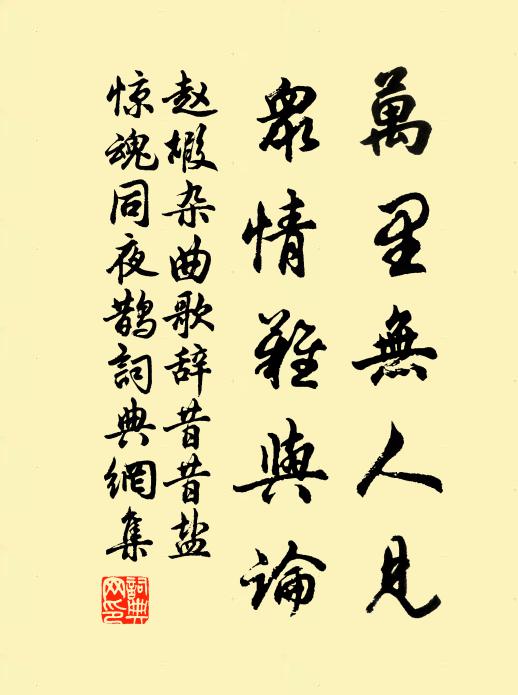 萬里無人見
衆情難與論
赵嘏杂曲歌辞昔昔盐
惊魂同夜鹊詞典網集
詞典網印